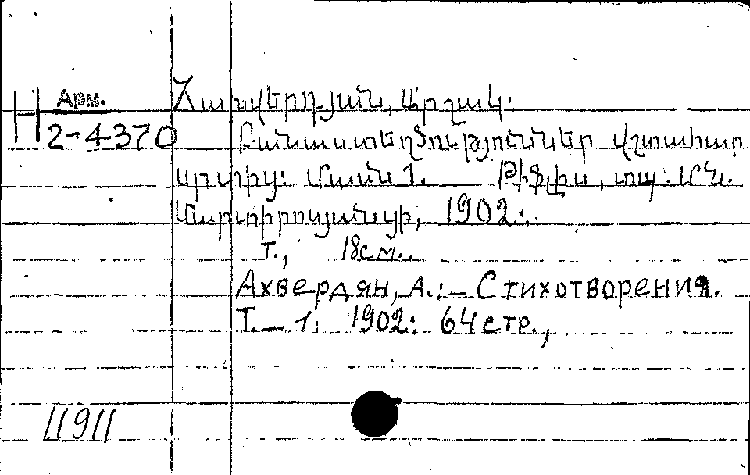 Арм.
Н
2-4370
Հախվերդյան, Արշակ.
Բանաստեղծություններ վշտահար
սրտից: Մասն 1. Թիֆլիս, տպ.
Մարտիրոսյանցի, 1902:
т., 18см..
Ахвердян, А.:– Стихотворения.
Т.– 1. 1902: 64стр.,
11911